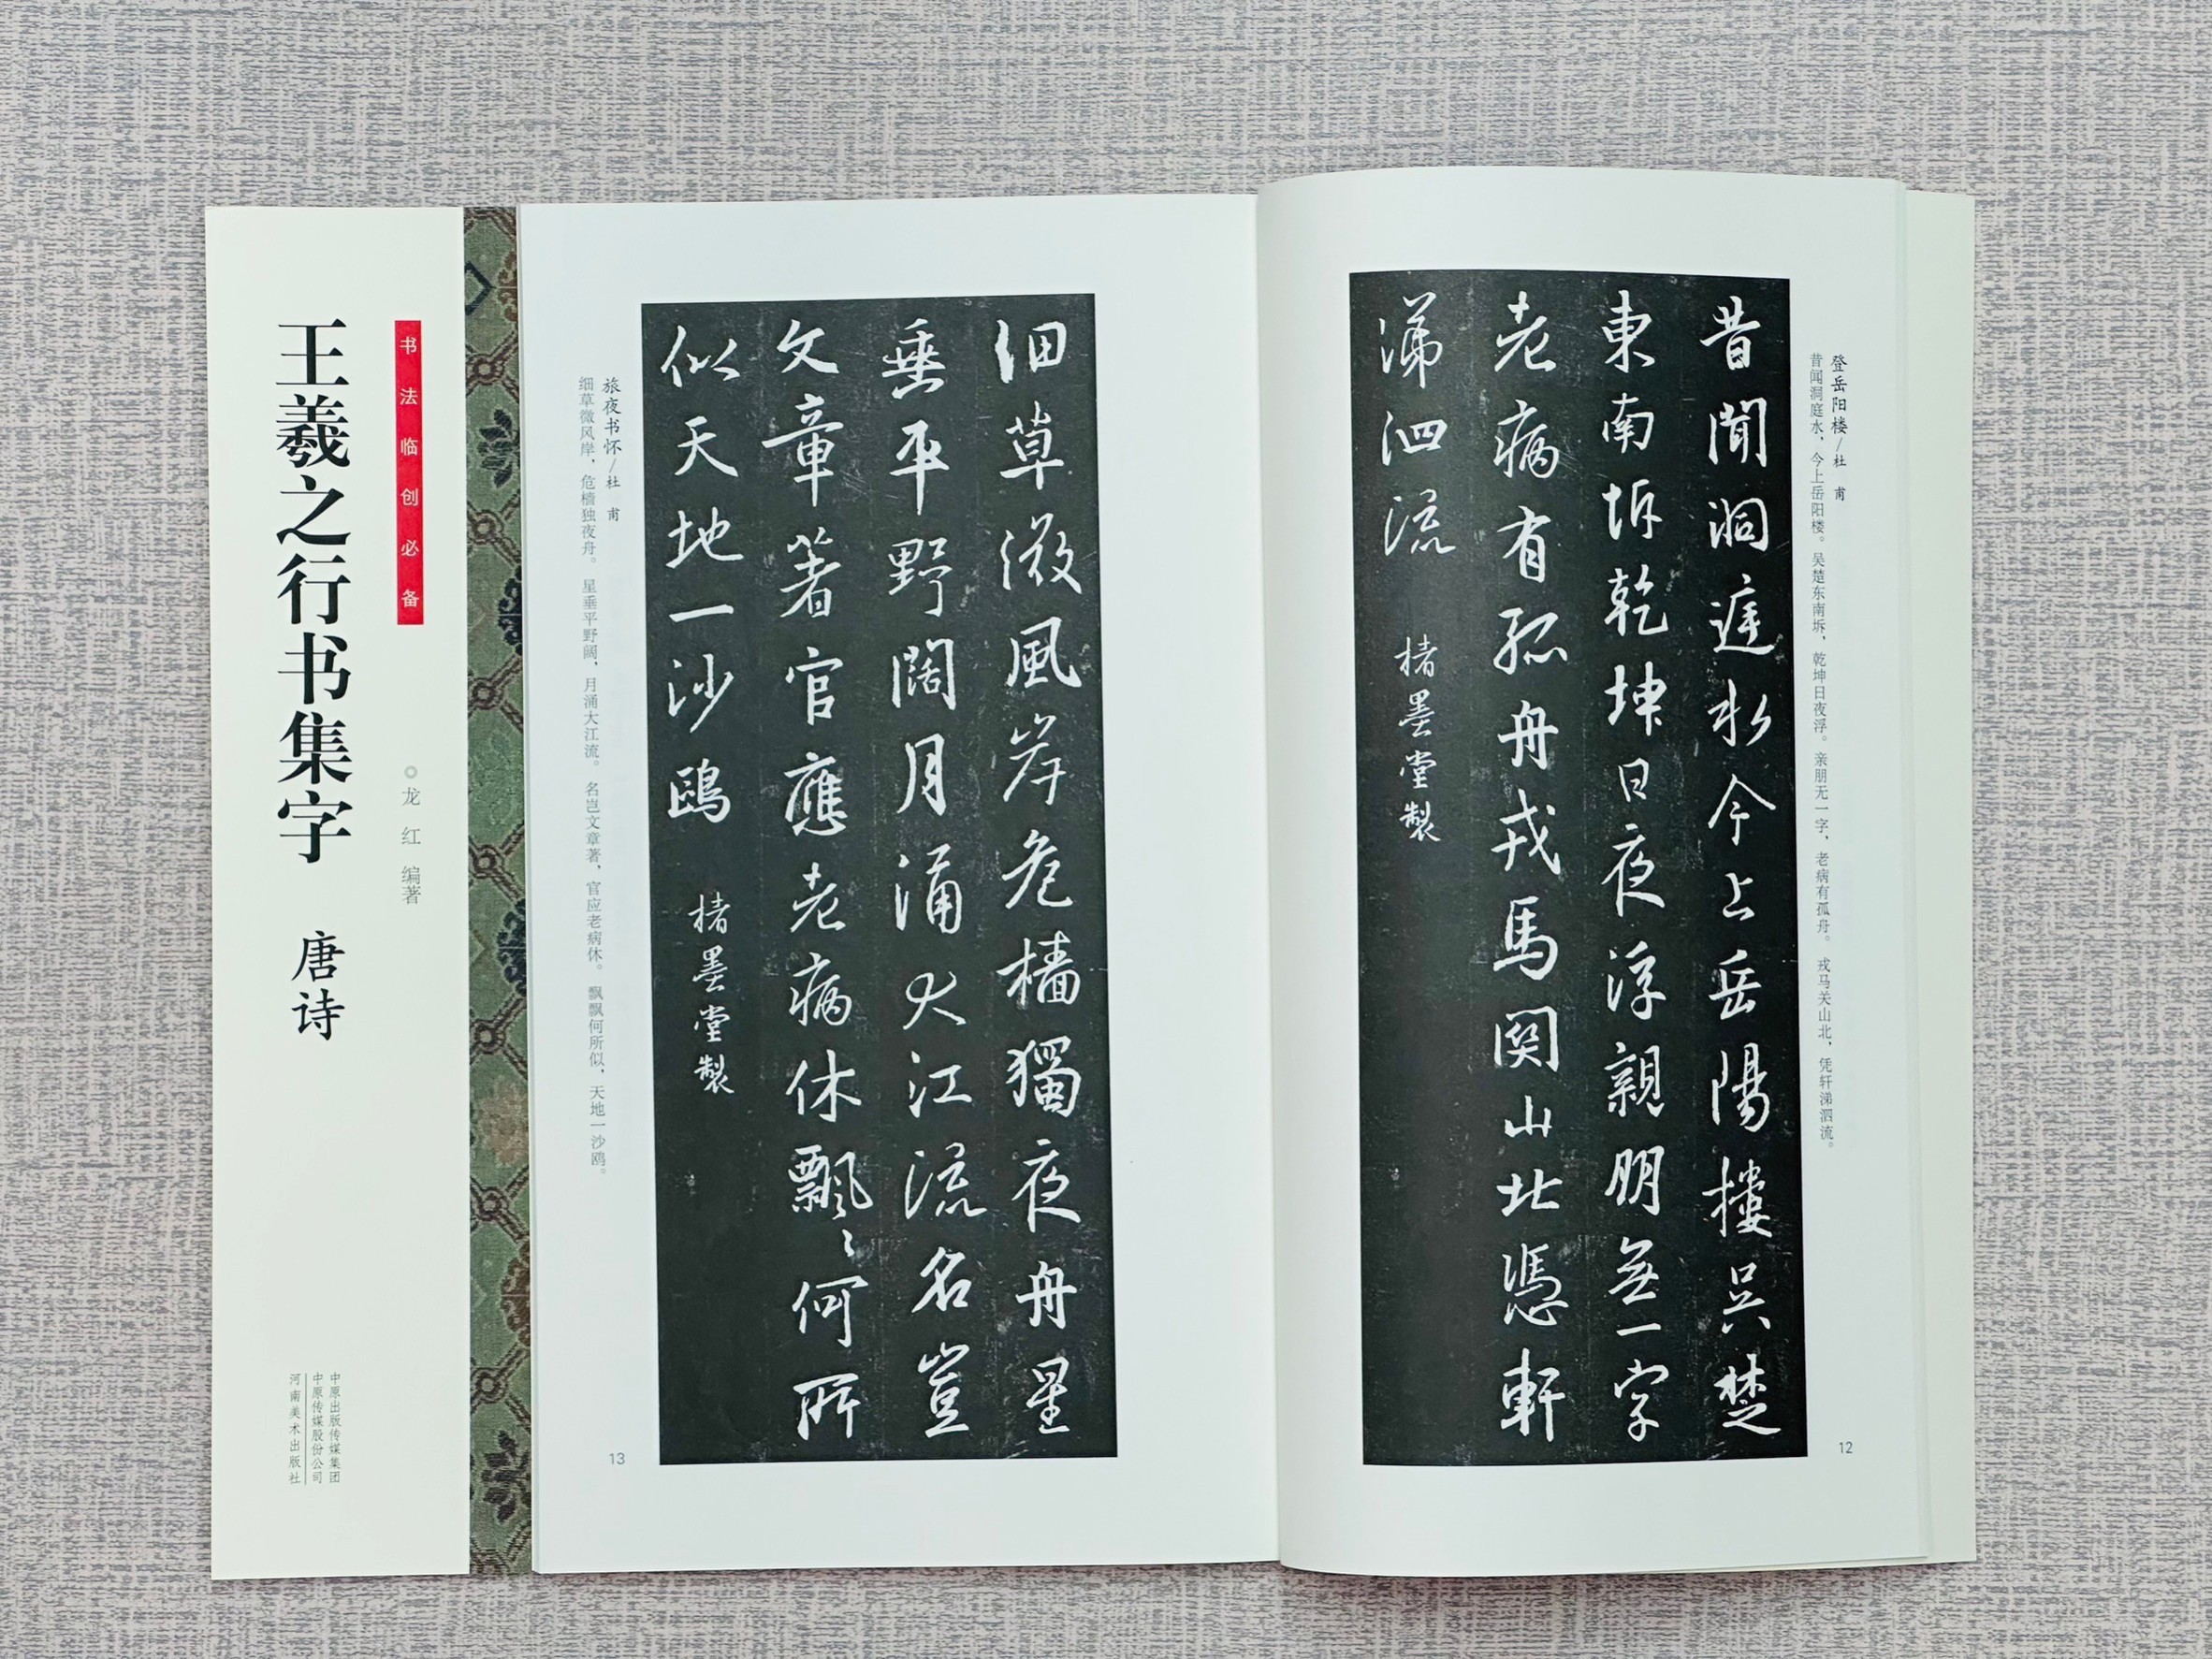 书法临创必备
王羲之行书集字 唐诗
◎龙 红 编著
中原出版传媒集团
中原传媒股份公司
河南美术出版社
登岳阳楼/杜 甫
昔闻洞庭水，今上岳阳楼。吴楚东南坼，乾坤日夜浮。亲朋无一字，老病有孤舟。戎马关山北，凭轩涕泗流。
昔聞洞庭水今上岳陽樓吳楚
東南坼乾坤日夜浮親朋無一字
老病有孤舟戎馬關山北憑軒
涕泗流 楮墨堂製
12
細草微風岸危檣獨夜舟星
垂平野闊月涌大江流名豈
文章著官應老病休飄〻何所
似天地一沙鷗 楮墨堂製
旅夜书怀/杜 甫
细草微风岸，危樯独夜舟。星垂平野阔，月涌大江流。名岂文章著，官应老病休。飘飘何所似，天地一沙鸥。
13